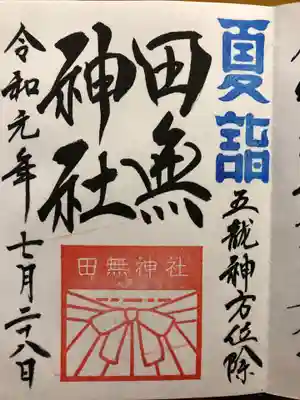 夏詣
五龍神方位除
田無
神社
令和元年七月二十八日
田無神社